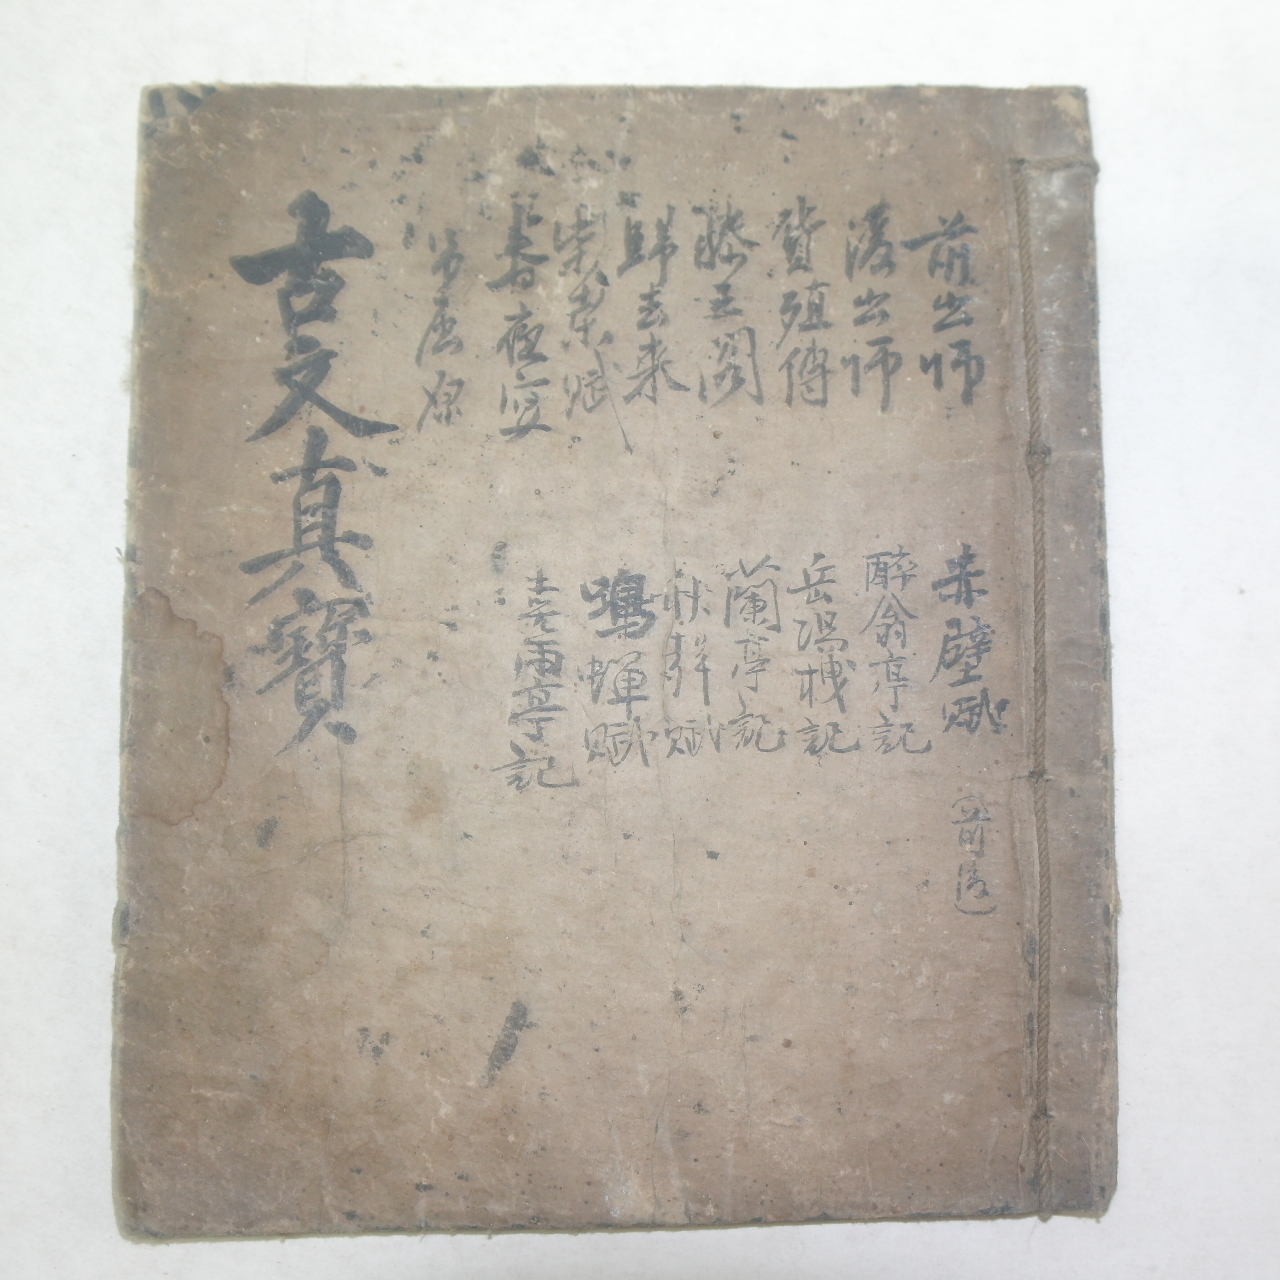 前出師
後出師
貨殖傳
滕王閣
歸去来
柴桑賦
春夜宴
吊屈原
赤壁賦 前後
醉翁亭記
岳陽楼記
蘭亭記
秋聲賦
鳴蟬賦
喜雨亭記
古文真寶